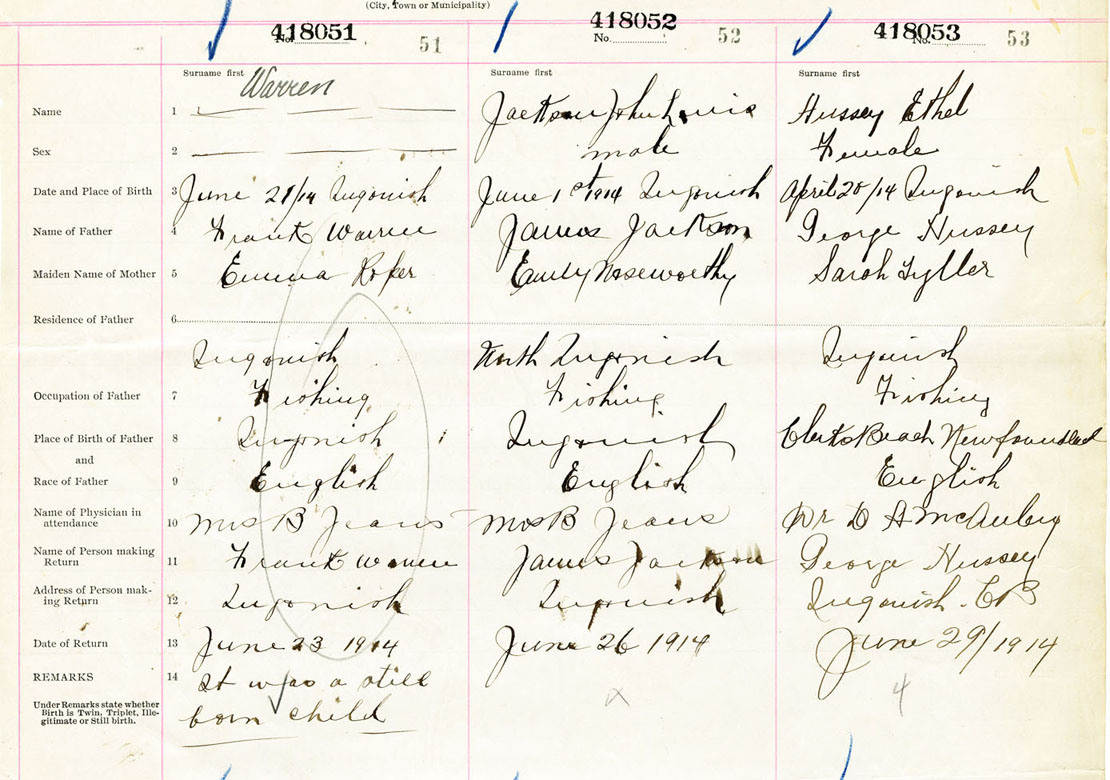 (City, Town or Municipality)
418051 418052 418053
No. 51 No. 52 No. 53
Surname first Surname first Surname first
Warren
Name 1 Jackson John Lewis Hussey Ethel
Sex 2 male Female
Date and Place of Birth 3 June 21/14 Ingonish June 1st 1914 Ingonish April 20/14 Ingonish
Name of Father 4 Frank Warren James Jackson George Hussey
Maiden Name of Mother 5 Emma Roper Emily Noseworthy Sarah
Residence of Father 6
Ingonish North Ingonish Ingonish
Occupation of Father 7 Fishing Fishing Fishing
Place of Birth of Father 8 Ingonish Ingonish Clarks Beach Newfoundland
and
Race of Father 9 English English English
Name of Physician in
attendance 10 Mrs B Jeans Mrs B Jeans Dr D A McAuley
Name of Person making
Return 11 Frank Warren James Jackson George Hussey
Address of Person mak-
ing Return 12 Ingonish Ingonish Ingonish. CB
Date of Return 13 June 23 1914 June 26 1914 June 29/1914
REMARKS 14 It was a still
Under Remarks state whether
Birth is Twin, Triplet, Ille-
gitimate or Still birth.
born child
x 4